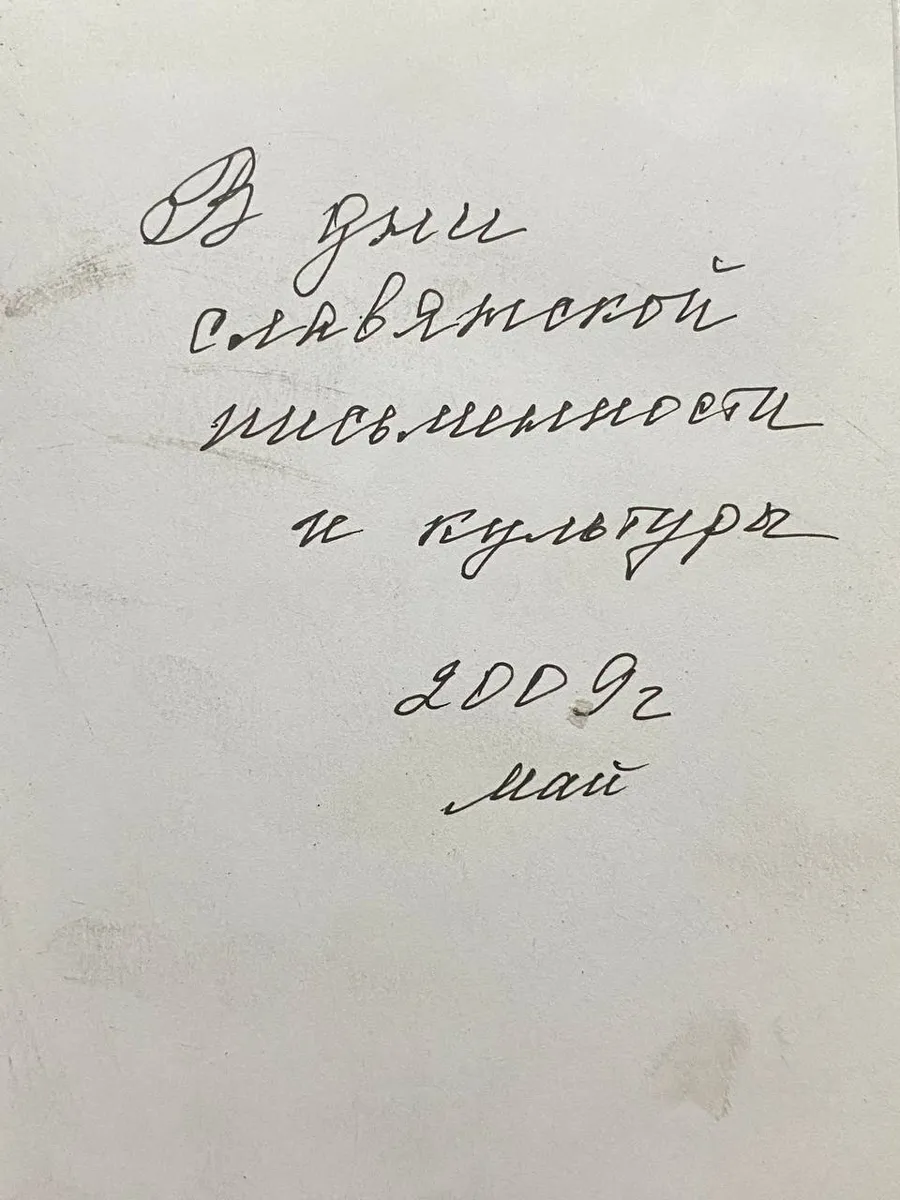 В дни
славянской
письменности
и культуры
2009г
май